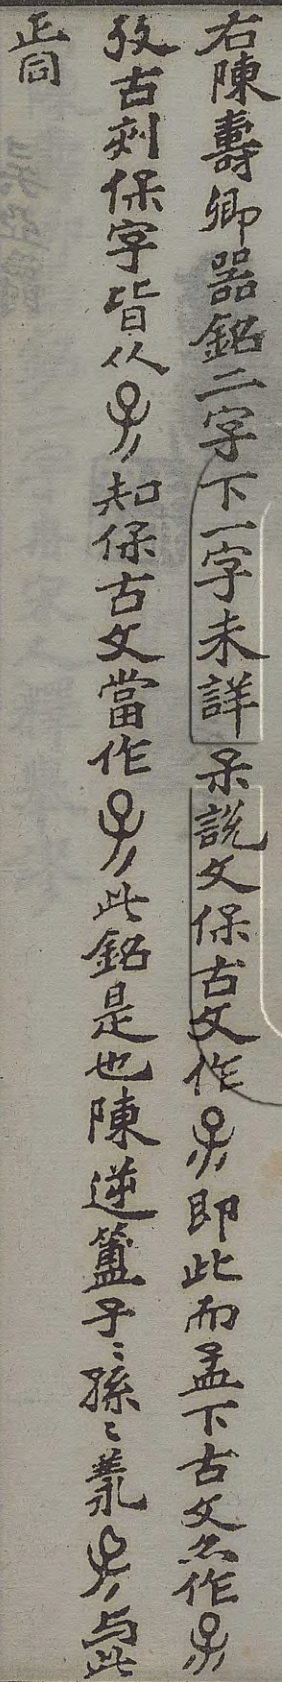 右陳壽卿器銘二字下一字未詳㒪說文保古文作即此而孟下古文亦作
攷古刻保字皆从知保古文當作此銘是也陳逆簠子〻孫〻羕与此
正同